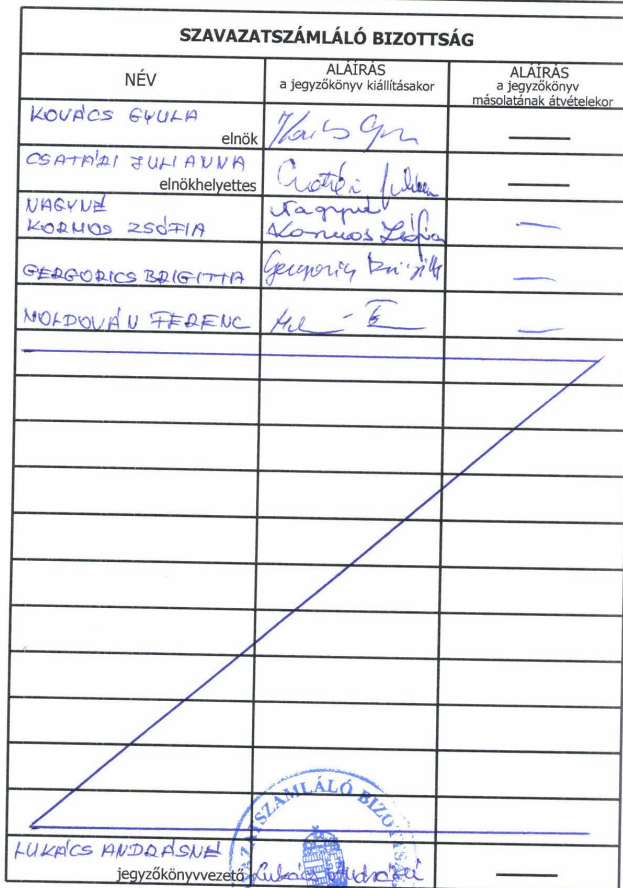 SZAVAZATSZÁMLÁLÓ BIZOTTSÁG
NÉV
ALÁÍRÁS
a jegyzőkönyv kiállításakor
ALÁÍRÁS
a jegyzőkönyv
másolatának átvételekor
KOVÁCS GYULA
elnök
CSATÁRI JULIANNA
elnökhelyettes
NAGYNÉ
KORMOS ZSÓFIA
Nagyné
Kormos Zsófia
GERGORICS BRIGITTA
Gergorics Brigitta
MOLDOVÁN FERENC
LUKÁCS ANDRÁSNÉ
jegyzőkönyvvezető
Lukács Andrásné